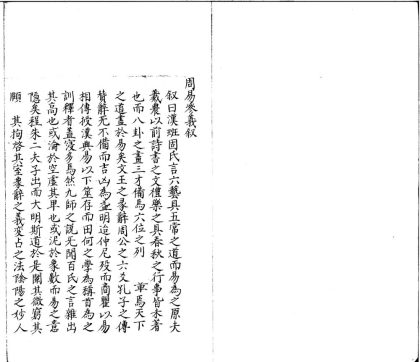 周易參義叙
叙曰漢班固氏言六藝具五常之道而易為之原夫
羲農以前詩書之文禮樂之具春秋之行事皆未著
也而八卦之畫三才備焉六位之列 章焉天下
之道盡於易矣文王之彖辭周公之六爻孔子之傳
贊辭无不備而吉凶為益明迨仲尼歿而商瞿以易
相傳授漢興易以下筮存而田何之學為稱首為之
訓釋者盖寖多焉然九師之說无聞百氏之言雜出
其高也或淪於空虛其卑也或泥於象數而易之意
隐矣程朱二夫子出而大明斯道於是闡其微窮其
願 其拘啓其室象辭之義变占之法陰陽之妙人